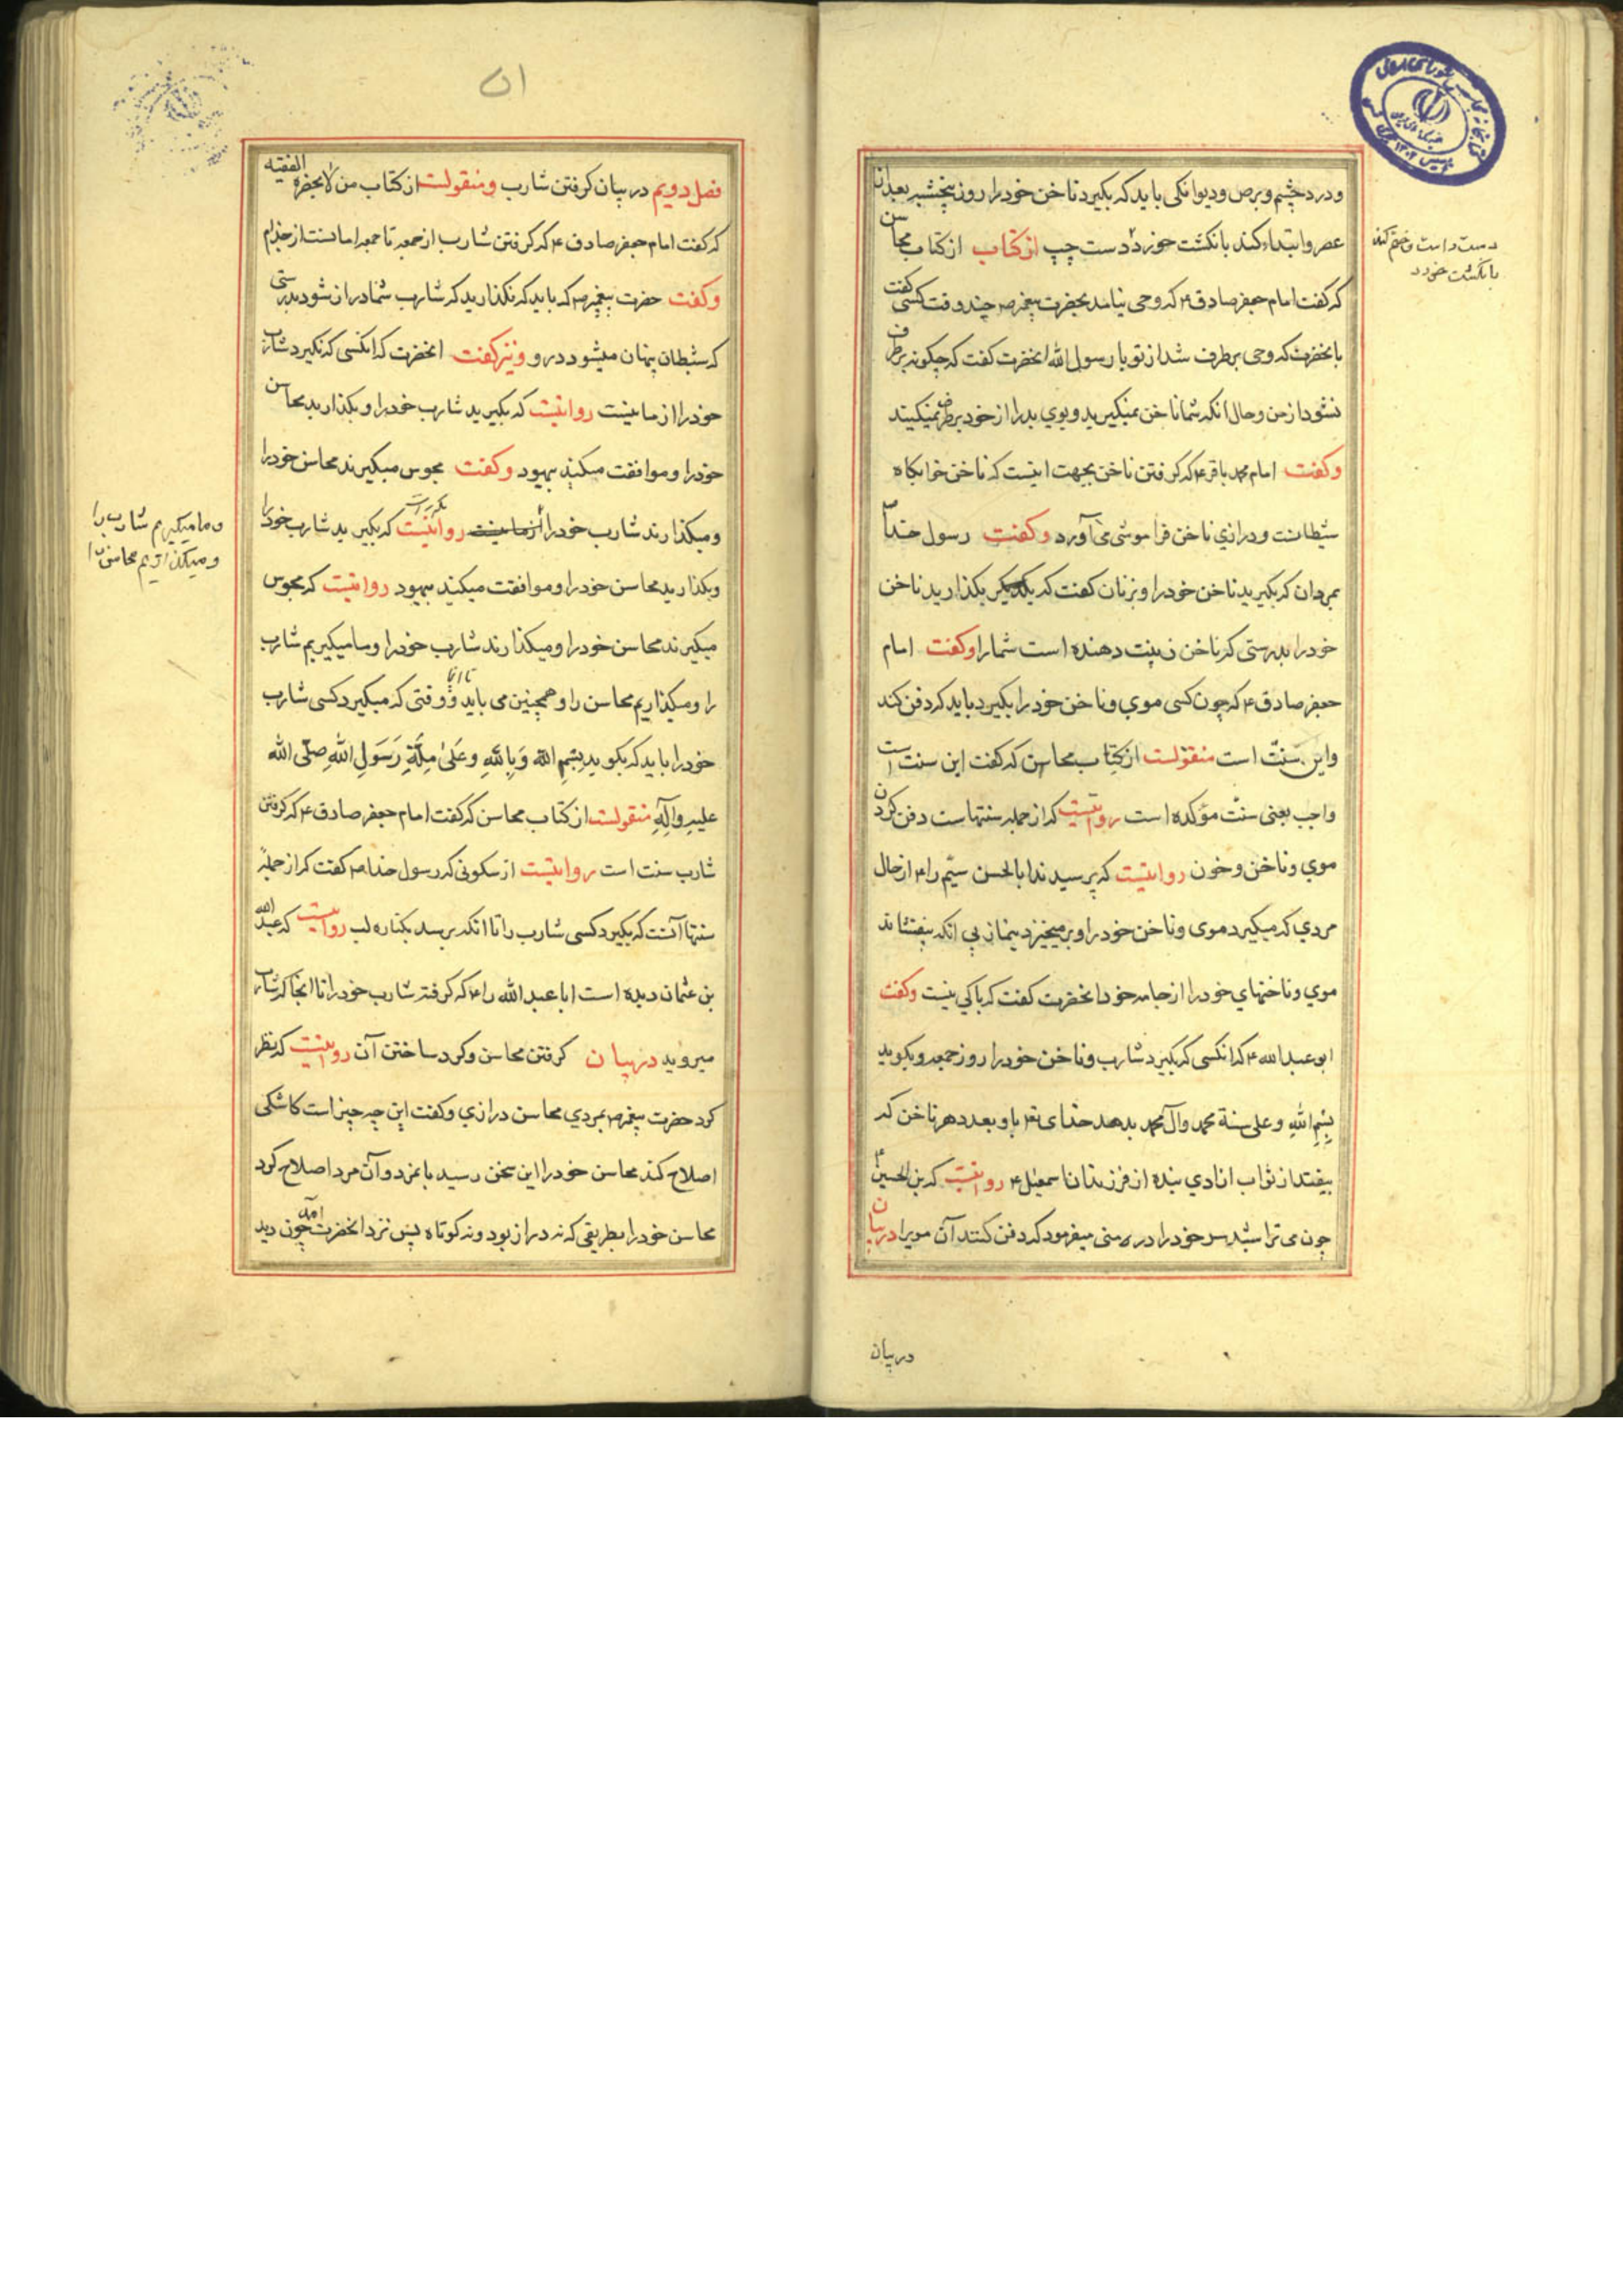 و درد چشم و برص و دیوانکی باید که بکیرد ناخن خود را روز پنجشنبه بعد از
عصر و ابتداء کند بانکشت خورد دست چپ از کتاب از کتاب محاسن
دست راست و ختم کند
بانکشت خورد
که کفت امام جعفر صادق ۴ که وحی نیامد بحضرت پیغمبر ص چند وقت کسی کفت
بانحضرت که وحی برطرف شد از تو یا رسول الله انحضرت کفت که چکونه برطرف
نشود از من و حال انکه شما ناخن نمیکیرید و بوی بد را از خود برطرف نمیکنید
و کفت امام محمد باقر ۴ که کرفتن ناخن بجهت اینست که ناخن خوابکاه
شیطانست و درازی ناخن فراموشی می آورد و کفت رسول خدا
بمردان که بکیرید ناخن خود را و بزنان کفت که بکذارید ناخن
خود را بدرستی که ناخن زینت دهنده است شما را و کفت امام
جعفر صادق ۴ که چون کسی موی و ناخن خود را بکیرد باید که دفن کند
و این سنت است منقولست از کتاب محاسن که کفت این سنت است
واجب یعنی سنت مؤکده است روایتست که از جمله سنتهاست دفن کردن
موی و ناخن و خون روایتست که پرسیدند ابا الحسن سیّم را ۴ از حال
مردی که میکیرد موی و ناخن خود را و برمیخیزد بنماز بی انکه بیفشاند
موی و ناخنهای خود را از جامه خود انحضرت کفت که باکی نیست و کفت
ابو عبد الله ۴ که انکسی که بکیرد شارب و ناخن خود را روز جمعه و بکوید
بِسْمِ اللهِ و علی سنة محمد وآل محمد بدهد خدای تع باو بعدد هر ناخن که
بیفتد از ثواب ازادی بنده از فرزندان اسمعیل ۴ روایتست که بن الحسین ۴
چون می تراشید سر خود را در منی میفرمود که دفن کنند آن مویرا در بیان
در بیان
۵۱
فصل دویم در بیان کرفتن شارب و منقولست از کتاب من لایحضره الفقیه
که کفت امام جعفر صادق ۴ که کرفتن شارب از جمعه تا جمعه امانست از جذام
و کفت حضرت پیغمبر ص که باید که نکذارید که شارب شما دراز شود بدرستی
که شیطان پنهان میشود درو و نیز کفت انحضرت که انکسی که نکیرد شارب
خود را از ما نیست روایتست که بکیرید شارب خود را و بکذارید محاسن
خود را و موافقت مکنید بیهود و کفت مجوس میکیرند محاسن خود را
و میکذارند شارب خود را از ما نیست روایتست که بکیرید شارب خود را
و ما میکیریم شارب را
و میکذاریم محاسن را
و بکذارید محاسن خود را و موافقت میکنید بیهود روایتست که مجوس
میکیرند محاسن خود را و میکذارند شارب خود را و ما میکیریم شارب
را و میکذاریم محاسن را و همچنین می باید و وقتی که میکیرد کسی شارب
خود را باید که بکوید بِسْمِ اللهِ وَبِاللهِ وَعَلیٰ مِلَّةِ رَسُولِ اللهِ صَلّی الله
علیهِ وَآلِهِ منقولست از کتاب محاسن که کفت امام جعفر صادق ۴ که کرفتن
شارب سنت است روایتست از سکونی که رسول خدا ص کفت که از جمله
سنتها آنست که بکیرد کسی شارب را تا انکه برسد بکناره لب روایتست که عبد الله
بن عثمان دیده است ابا عبد الله را ۴ که کرفته شارب خود را تا انجا که شارب
میروید در بیان کرفتن محاسن و کرد ساختن آن روایتست که نظر
کرد حضرت پیغمبر ص بمردی محاسن درازی و کفت این چه چیز است کاشکی
اصلاح کند محاسن خود را این سخن رسید بانمرد و آن مرد اصلاح کرد
محاسن خود را بطریقی که نه دراز بود و نه کوتاه پس نزد انحضرت آمد چون دید